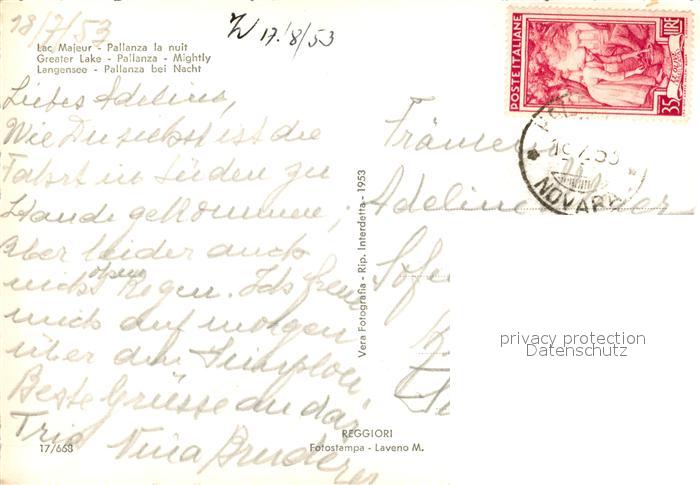 18/7/53
W 17./8/53
Lac Majeur - Pallanza la nuit
Greater Lake - Pallanza - Mightly
Langensee - Pallanza bei Nacht
Liebes Adelina,
Wie Du siehst ist die
Fahrt in Süden zu
Stande gekommen,
aber leider auch
nicht ohne Regen. Ich freue
mich auf morgen
über den Simplon.
Beste Grüsse an das
Trio Nina Bruderer
17/663
Vera Fotografia - Rip. Interdetta - 1953
REGGIORI
Fotostampa - Laveno M.
POSTE ITALIANE
LIRE
35
NOVARA
Adelin
privacy protection
Datenschutz